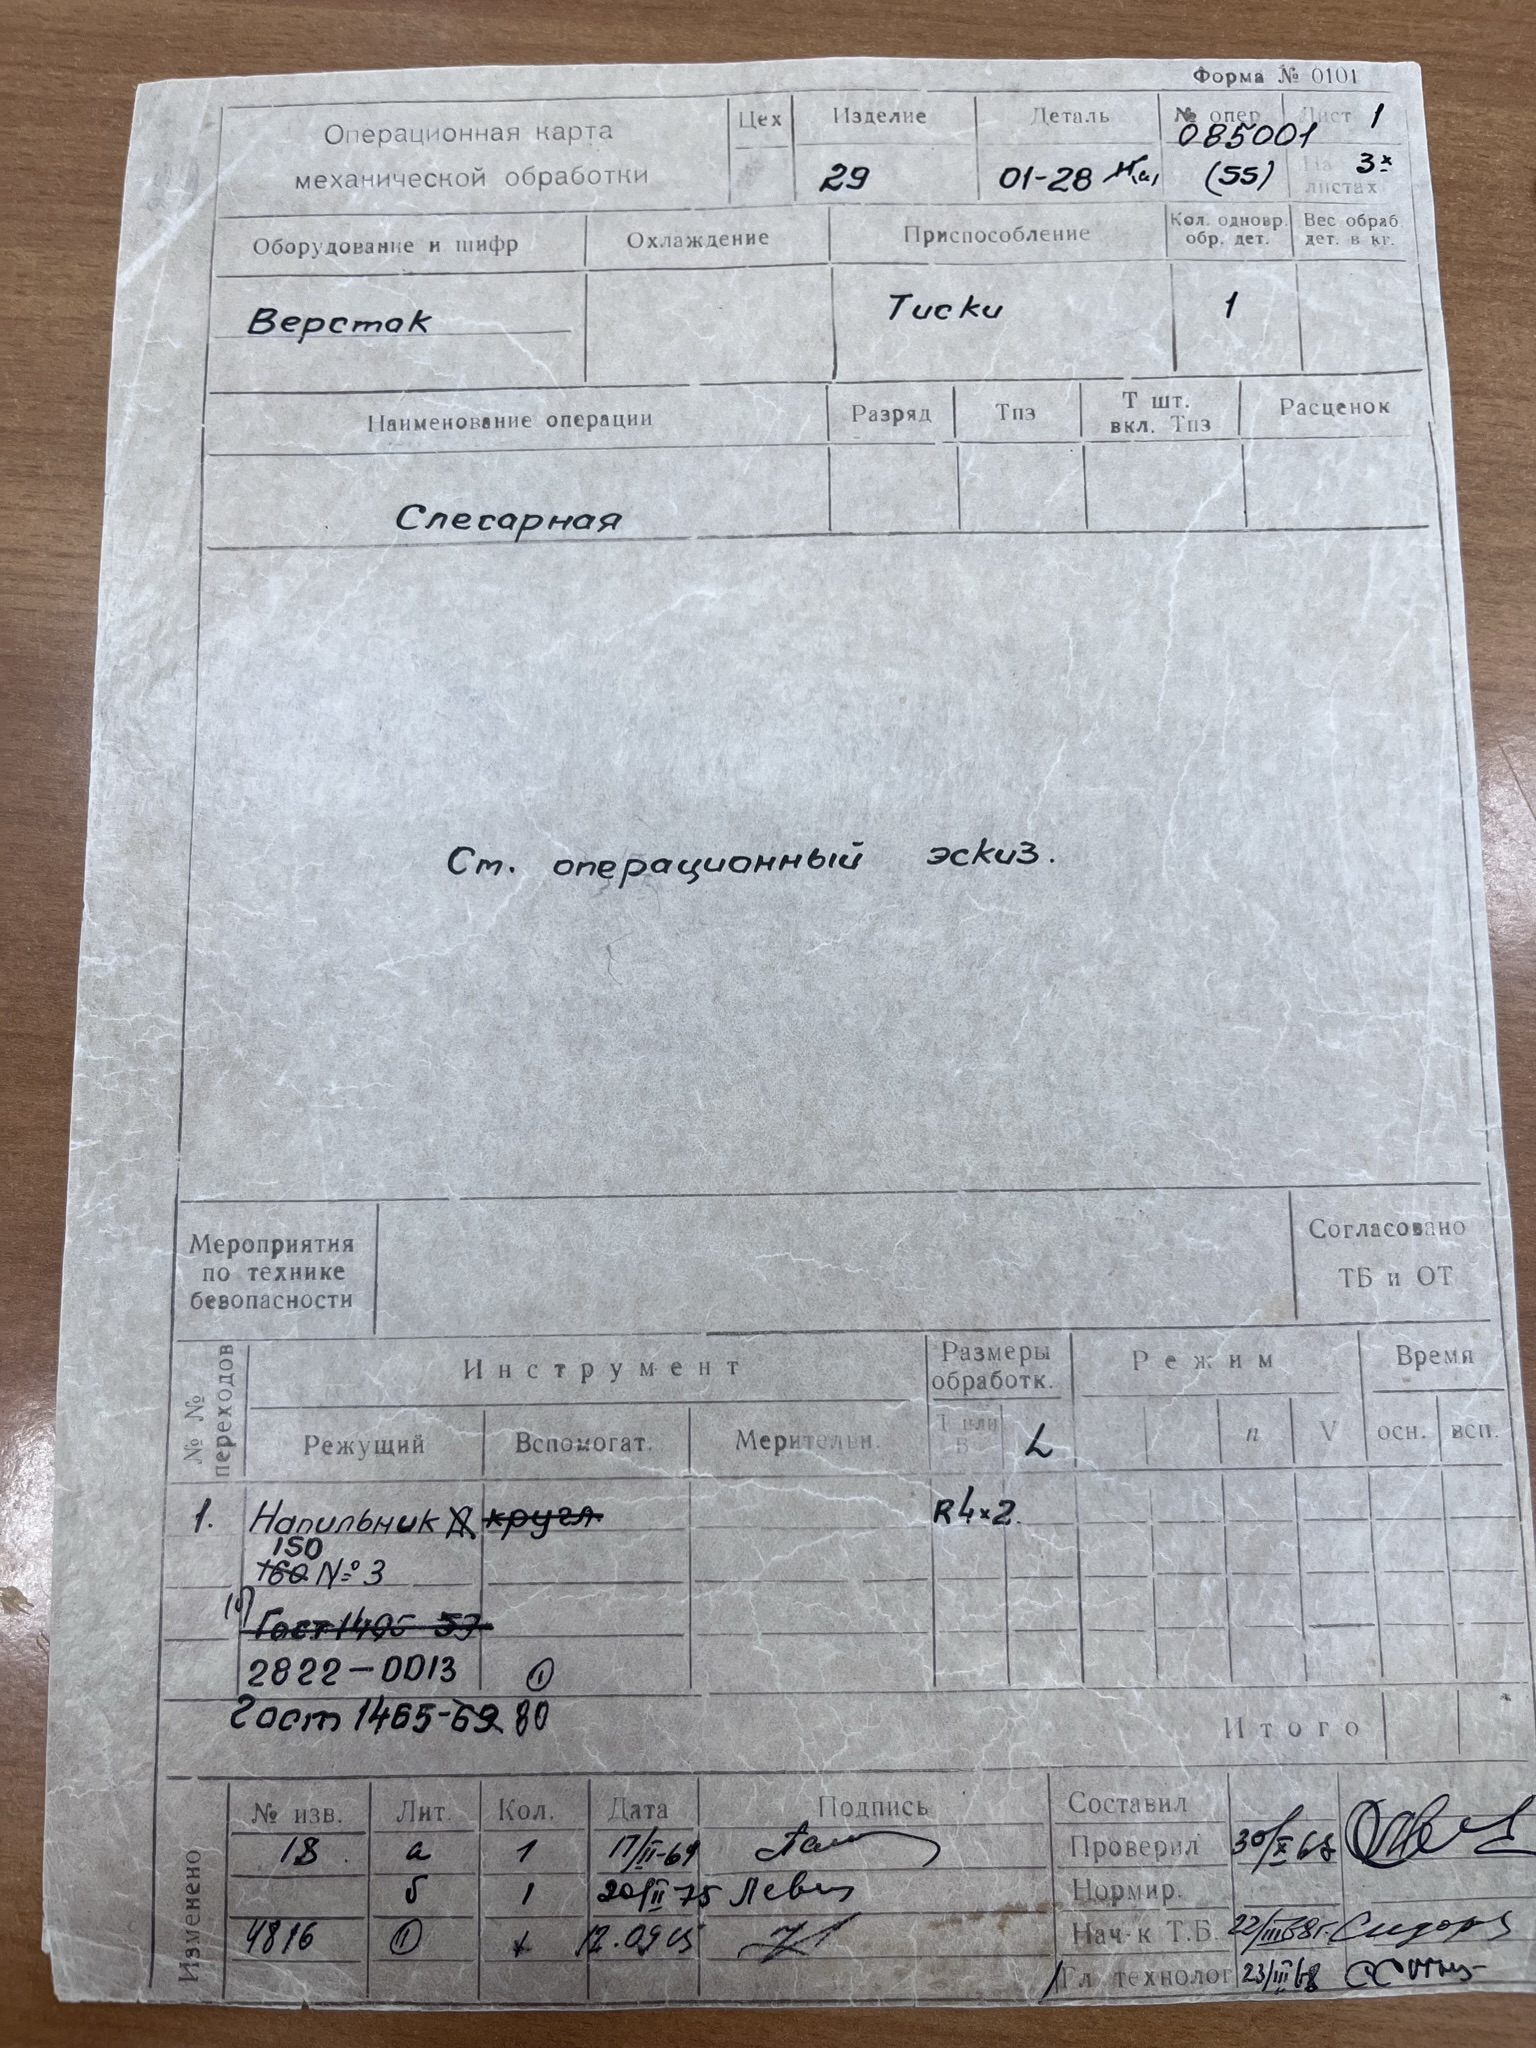 Форма № 0101
Операционная карта
механической обработки
Цех
Изделие
29
Деталь
01-28
№ опер.
085001
(55)
Лист 1
На 3х
листах
Оборудование и шифр
Охлаждение
Приспособление
Кол. одновр.
обр. дет.
Вес обраб.
дет. в кг.
Верстак
Тиски
1
Наименование операции
Разряд
Тпз
Т шт.
вкл. Тпз
Расценок
Слесарная
См. операционный эскиз.
Мероприятия
по технике
безопасности
Согласовано
ТБ и ОТ
№ №
переходов
Инструмент
Размеры
обработк.
Режим
Время
Режущий
Вспомогат.
Мерительн.
Т или
В
L
n
V
осн.
всп.
1. Напильник кругл R4×2.
150
160 №3
Гост 1465-59
2822-0013 1
Гост 1465-69 80
Итого
Изменено
№ изв. Лит. Кол. Дата Подпись
18 а 1 17/II-69
б 1 20/II-75
4816 1 12.09
Составил
Проверил 30/X 68
Нормир.
Нач-к Т.Б. 22/III 68г.
Гл технолог 23/III 68